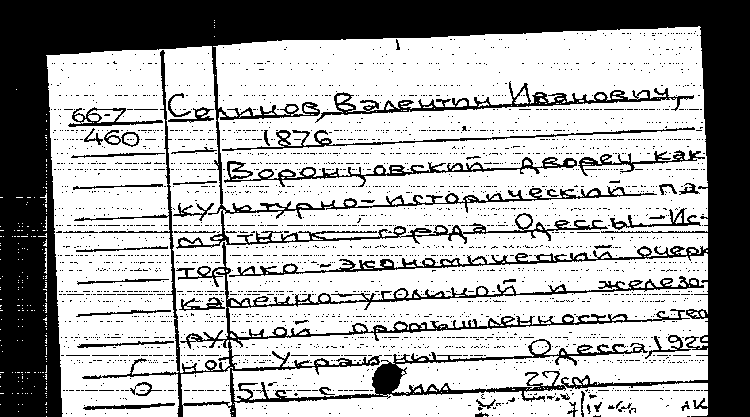 66-7 Селинов, Валентин Иванович,
460 1876
Воронцовский дворец как
культурно-исторический па-
мятник города Одессы.-Ис-
торико-экономический очерк
каменно-угольной и железо-
рудной промышленности степ
ной Украины. Одесса, 1929
О 51с. с илл 27см